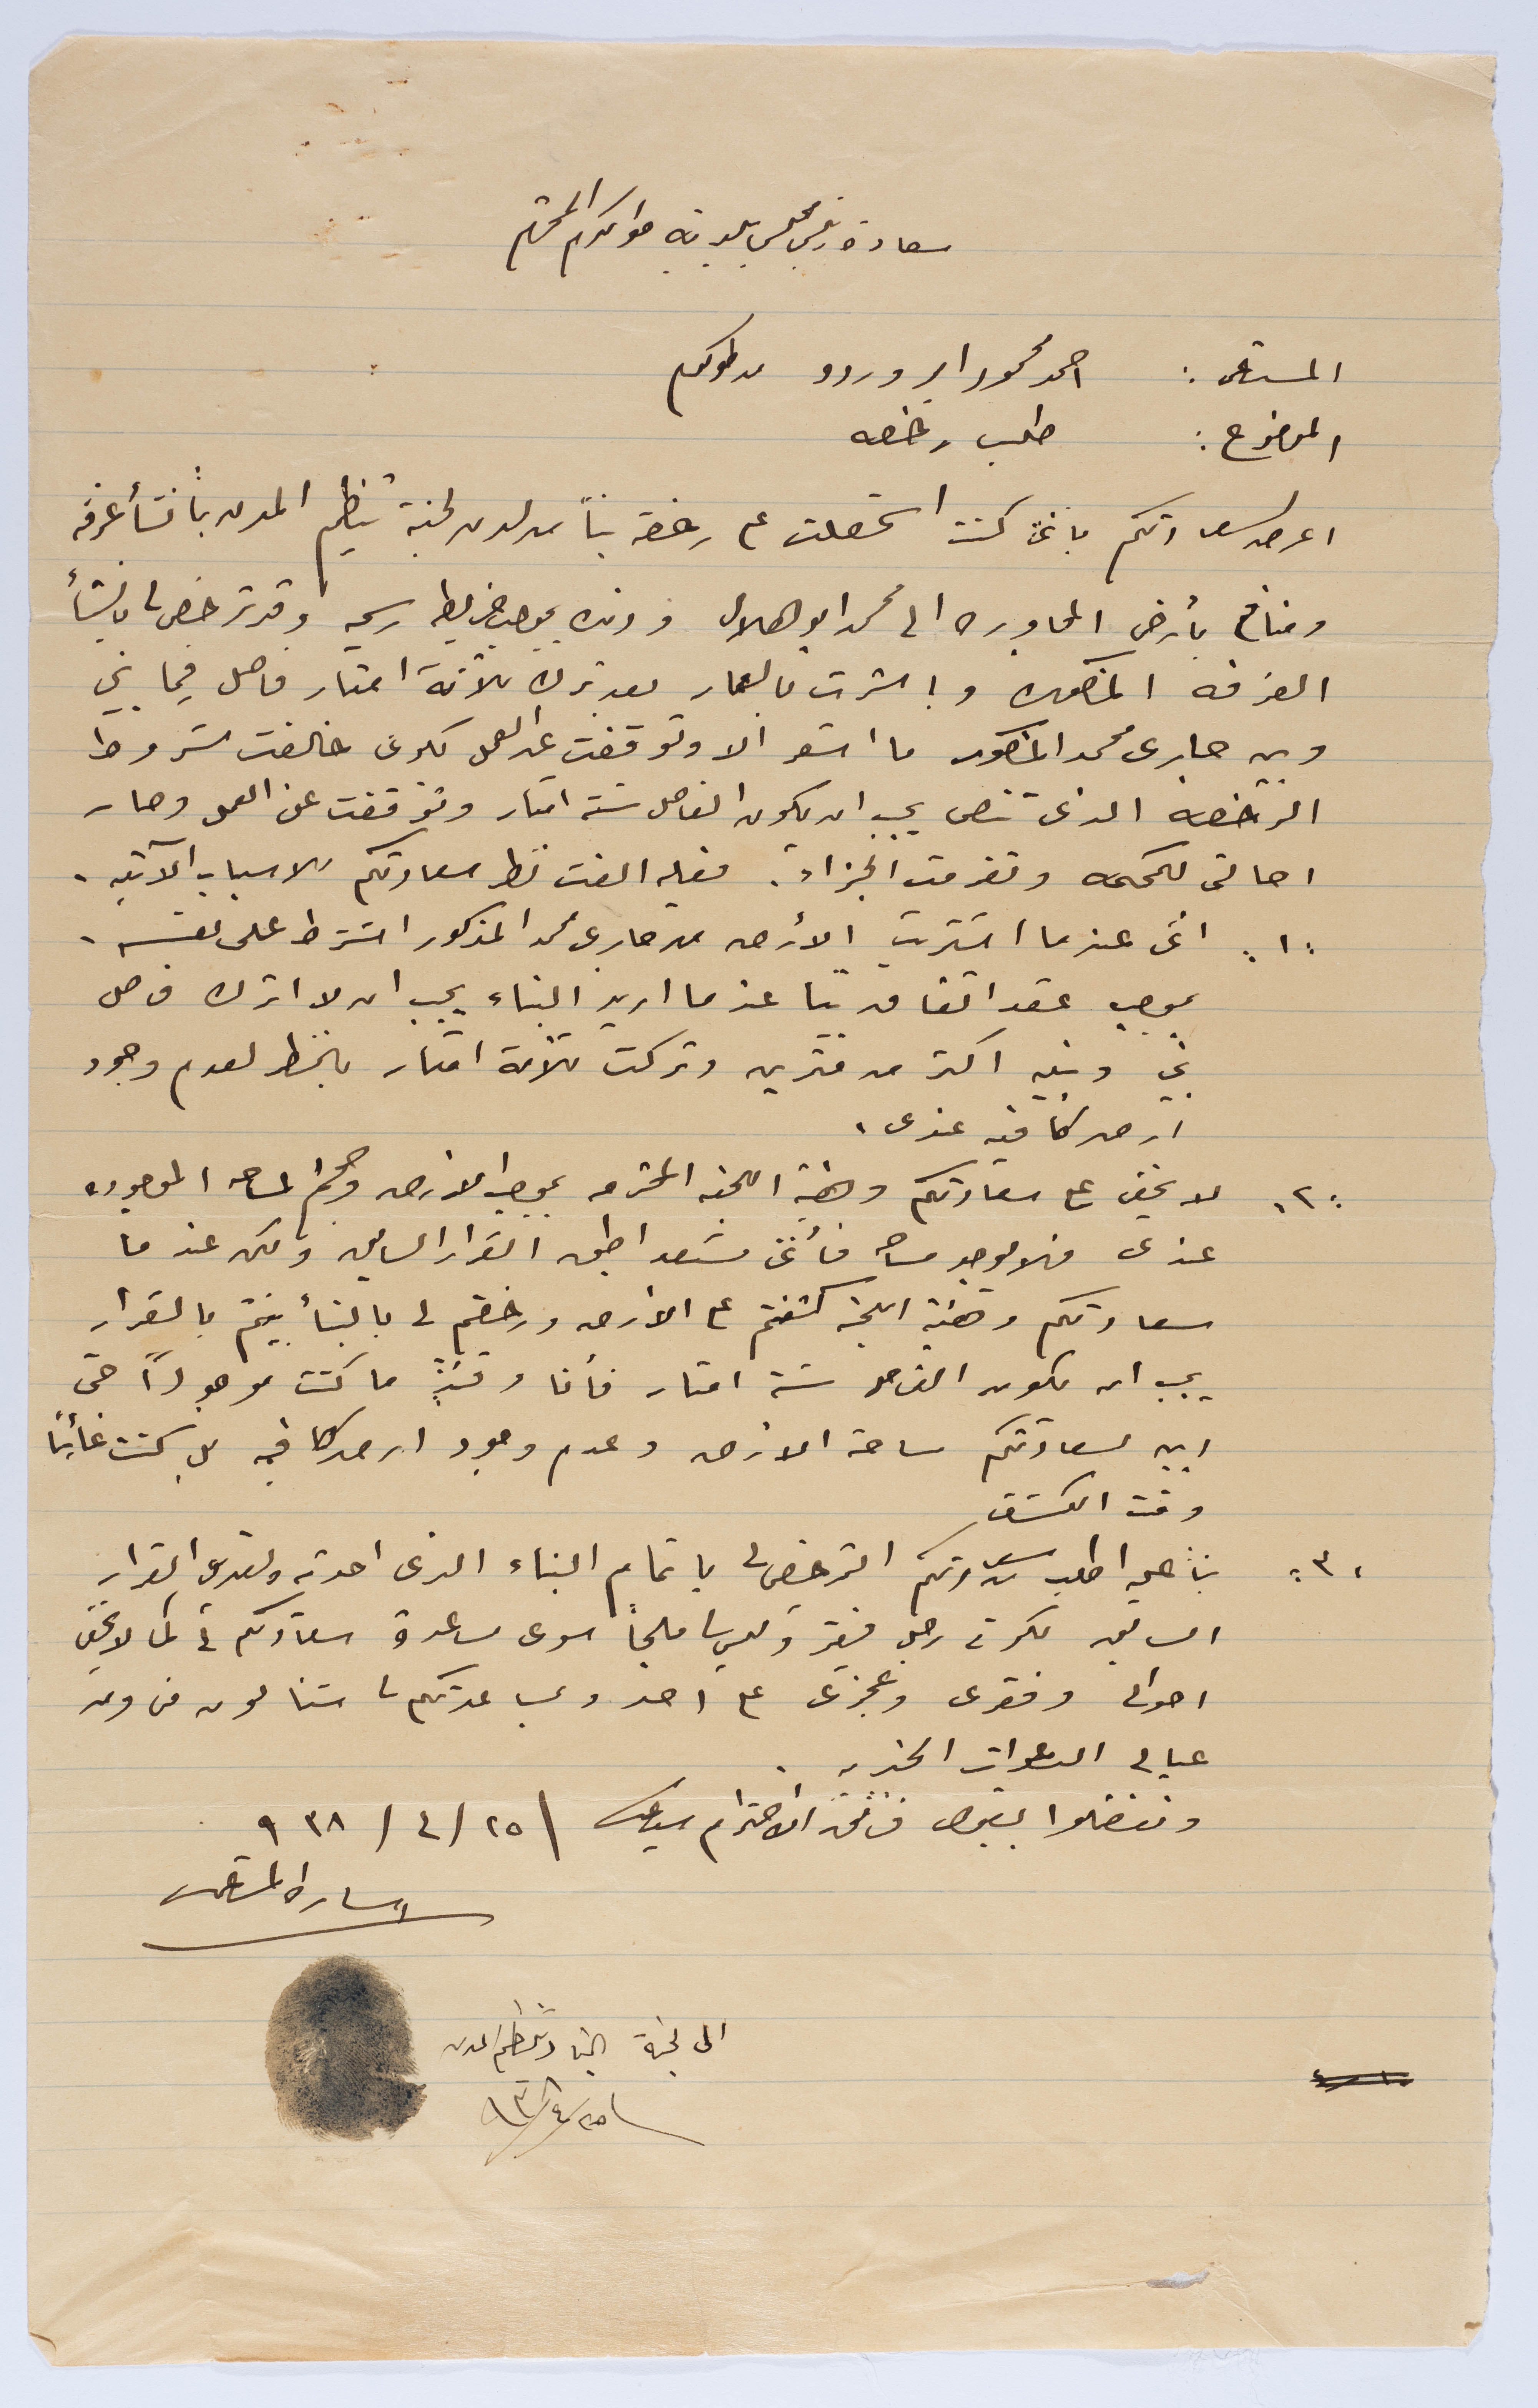 سعادة رئيس مجلس بلدية طولكرم المحترم
المستدعي : احمد محمود ابو وردو من طولكرم
الموضوع : طلب رخصه
اعرض لسعادتكم بانني كنت استحصلت على رخصة بناً من لدن لجنة تنظيم المدن بأنشأ غرفه
ومنافع بأرضي المجاوره الى محمد ابو هلال وذلك بموجب خريطه رسميه وقد ترخص لي بانشأ
الغرفه المذكوره وباشرت بالعمار بعد ترك ثلاثة امتار فاصل فيما بيني
وبين جاري محمد المذكور ما اشعر الا وتوقفت عن العمل لكوني خالفت شروط
الرخصه الذي تنص يجب ان يكون الفاصل ستة امتار وتوقفت عن العمل وصار
احالتي للمحكمه وتغرمت الجزاء . فعليه الفت نظر سعادتكم للاسباب الآتيه .
١ : انني عندما اشتريت الأرض من جاري محمد المذكور اشترط على نفسه .
بموجب عقد اتفاق بيننا عندما اريد البناء يجب ان لا اترك فاصل
بيني وبينه اكثر من مترين وتركت ثلاثة امتار بالنظر لعدم وجود
ارض كافيه عندي .
٢ . لا يخفى على سعادتكم وهيئة اللجنه المحترمه بموجب الارض وحجم المساحه الموجوده
عندي فلو يوجد مساحه فأنني مستعد اطبق القرار السابق ولكن عندما
سعادتكم وهيئة اللجنة كشفتم على الارض ورخصتم لي بالبنأ بينتم بالقرار
يجب ان يكون الفاصل ستة امتار فأنا وقتئذٍ ما كنت موجوداً حتى
ابين لسعادتكم مساحة الارض وعدم وجود ارض كافيه بل كنت غائباً
وقت الكشف
٣ : بناً عليه اطلب من سعادتكم الترخيص لي باتمام البناء الذي احدثته وتعديل القرار
السابق لكوني رجل فقير وليس لي ملجأ سوى مساعدة سعادتكم لي كما لا يخفى
احوالي وفقري وعجزي على احد وبمساعدتكم لي ستنالون مني ومن
عيالي الدعوات الخيريه .
وتفضلوا بقبول فائق الاحترام سيدي ٢٥ / ٤ / ٩٣٨
اشارة المستدعي
الى لجنة البناء وتنظيم المدن
٢٥/٤/٩٣٨